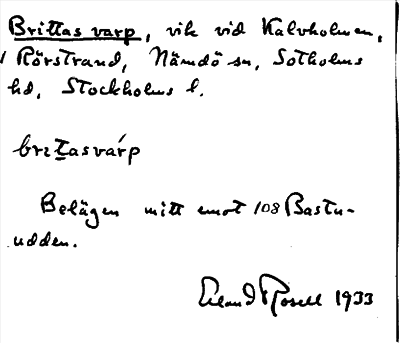 Brittas varp, vik vid Kalvholmen,
Rörstrand, Nämdö sn, Sotholms
hd, Stockholms l.
britasvárp
Belägen mitt emot 108 Bastu-
udden.
Erland Rosell 1933